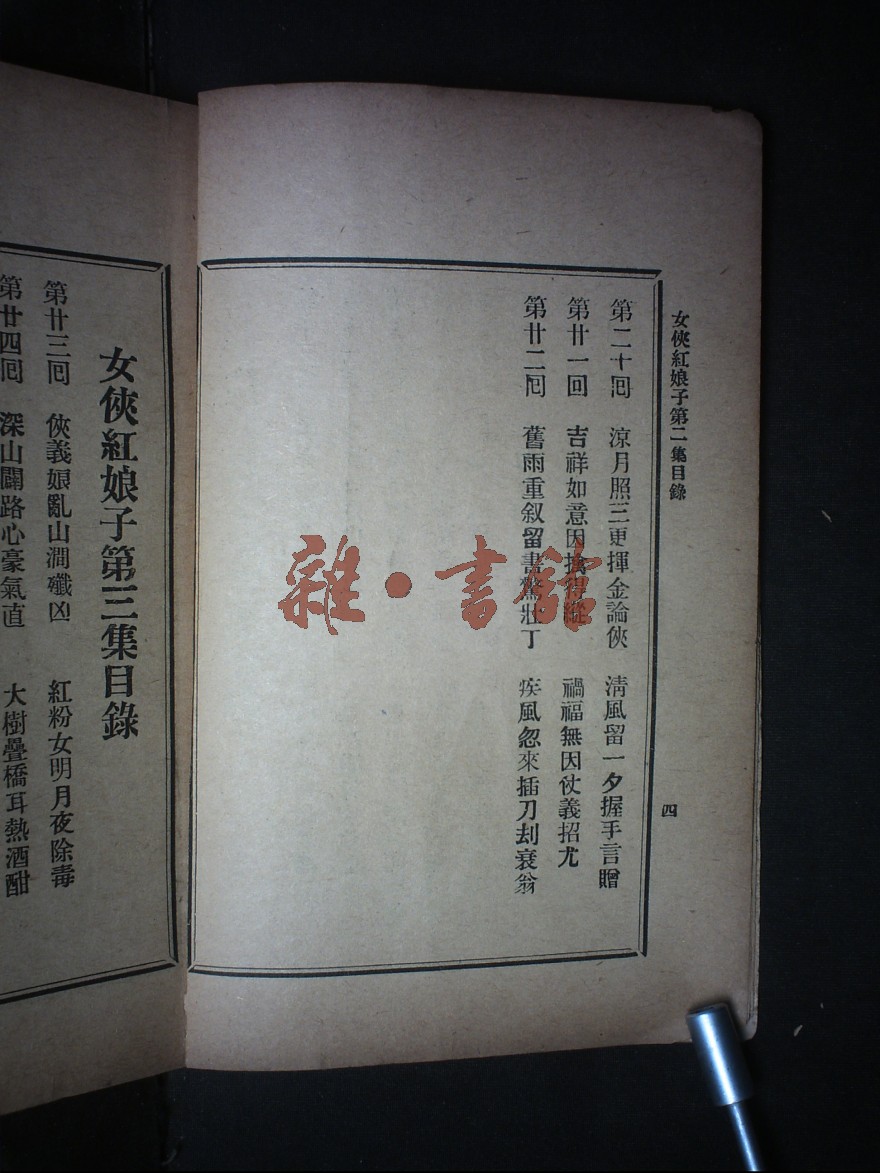 女俠紅娘子第二集目錄
四
第二十囘 涼月照三更揮金論俠 清風留一夕握手言贈
第廿一回 吉祥如意因擒得縱 禍福無因仗義招尤
第廿二囘 舊雨重叙留書驚壯丁 疾風忽來插刀刦衰翁
女俠紅娘子第三集目錄
第廿三囘 俠義娘亂山澗殲凶 紅粉女明月夜除毒
第廿四囘 深山闢路心豪氣直 大樹疊橋耳熱酒酣
雜·書館